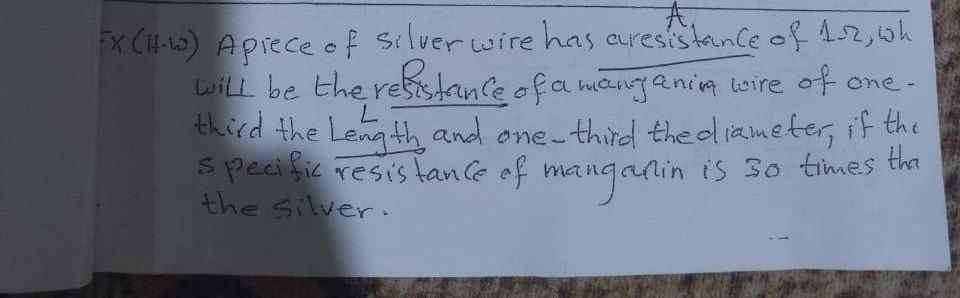 A
Ex (H.w) A piece of silver wire has a resistance of 1Ω, wh
R
will be the resistance of a manganin wire of one-
L
third the Length and one-third the diameter, if the
specific resistance of manganin is 30 times tha
the silver.